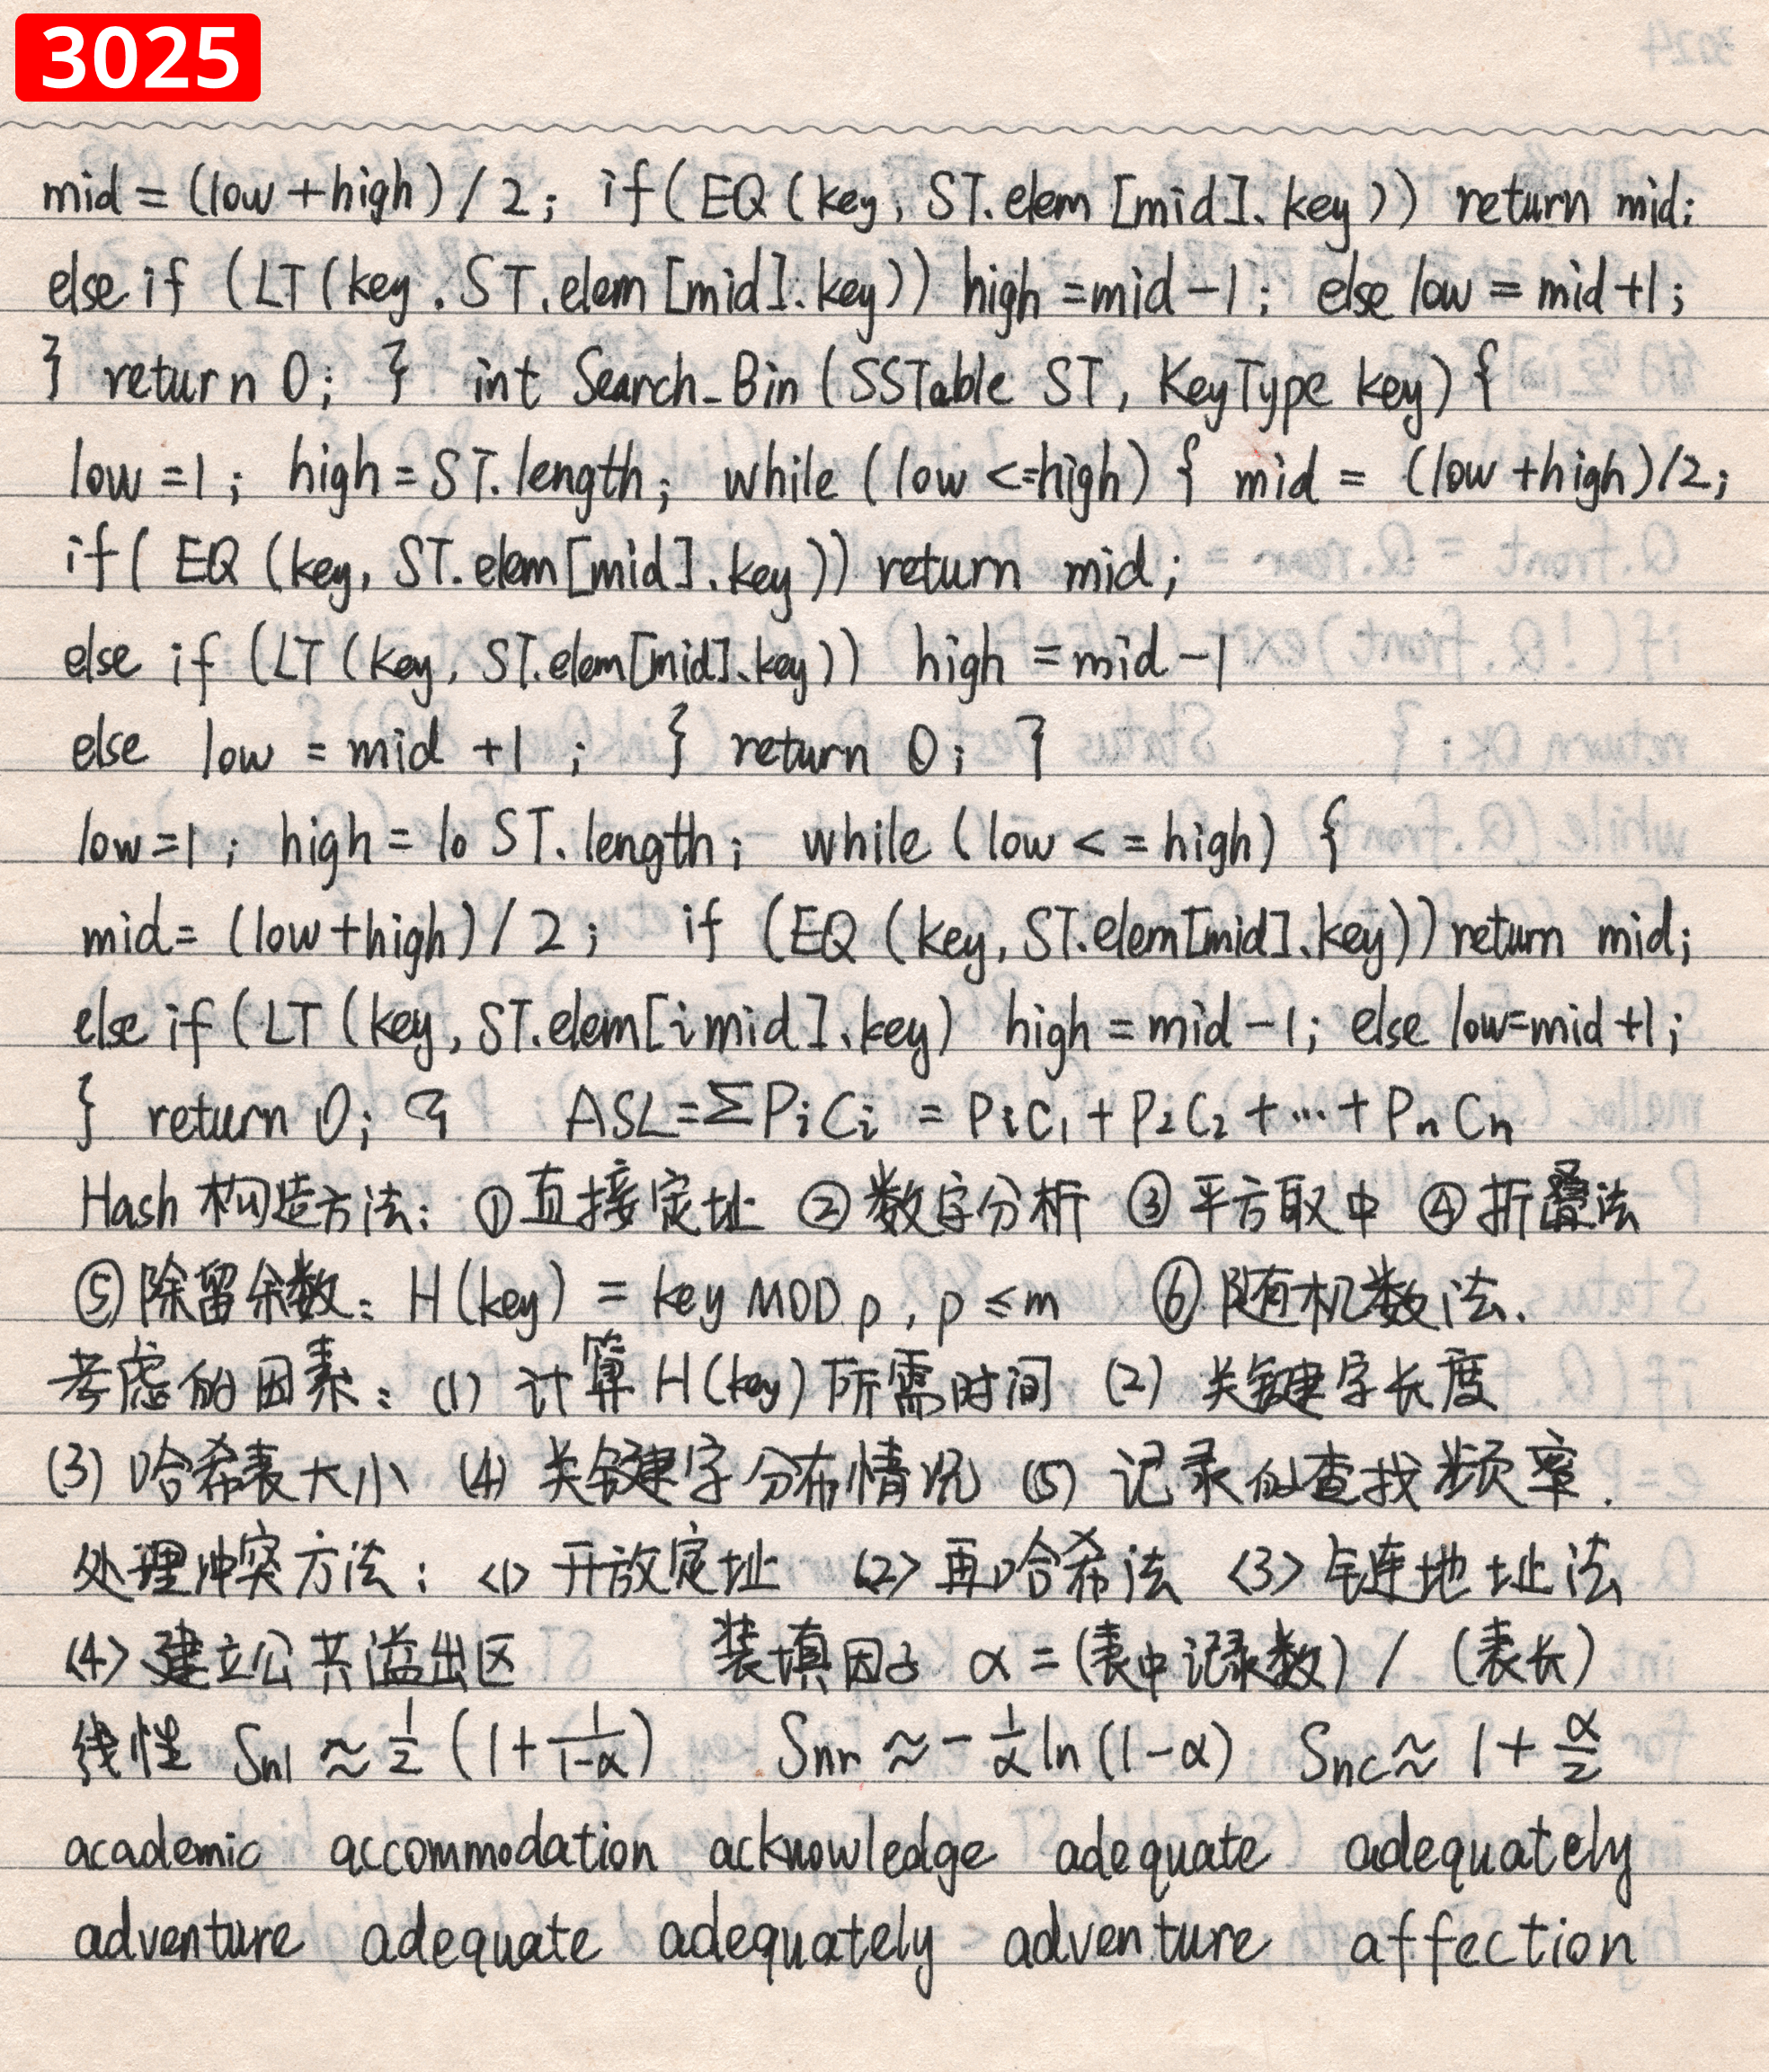 3025
mid = (low + high) / 2; if (EQ (key, ST.elem [mid]. key)) return mid;
else if (LT (key . ST.elem [mid]. key)) high = mid - 1; else low = mid + 1;
} return 0; } int Search_Bin (SSTable ST, KeyType key) {
low = 1; high = ST.length; while (low <= high) { mid = (low + high)/2;
if ( EQ (key, ST.elem [mid]. key)) return mid;
else if (LT (key, ST.elem[mid].key)) high = mid - 1
else low = mid + 1 ; } return 0; }
low = 1; high = 10 ST. length; while (low < = high) {
mid = (low + high) / 2; if (EQ (key, ST.elem[mid].key)) return mid;
else if (LT (key, ST.elem[i mid].key) high = mid - 1; else low = mid + 1;
} return 0; } ASL = ΣPiCi = PiC1 + P2C2 + ⋯ + PnCn
Hash 构造方法: ①直接定址 ②数字分析 ③平方取中 ④折叠法
⑤除留余数: H(key) = key MOD p, p ≤ m ⑥随机数法.
考虑的因素: (1) 计算 H(key) 所需时间 (2) 关键字长度
(3) 哈希表大小 (4) 关键字分布情况 (5) 记录的查找频率.
处理冲突方法: <1> 开放定址 <2> 再哈希法 <3> 链地址法
<4> 建立公共溢出区 装填因子 α = (表中记录数) / (表长)
线性 Snl ≈ 1/2 (1 + 1/(1-α)) Snr ≈ - 1/α ln (1-α) Snc ≈ 1 + α/2
academic accommodation acknowledge adequate adequately
adventure adequate adequately adventure affection